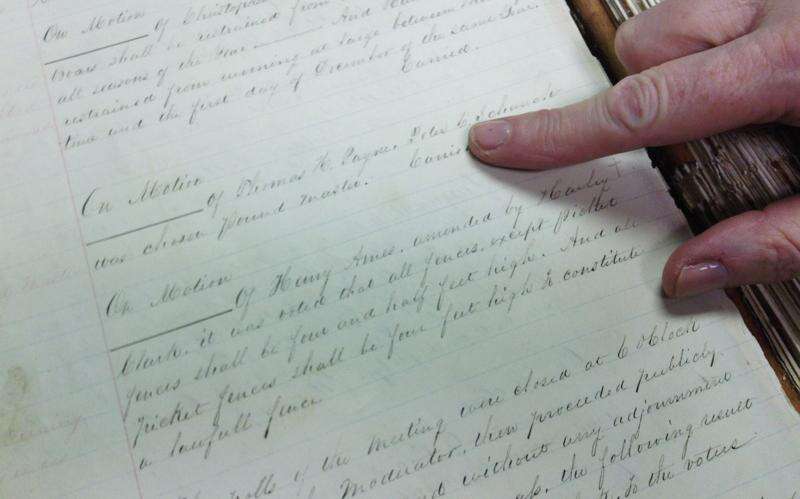 On Motion of Christopher
Boars shall be restrained from
all seasons of the Year. And
restrained from running at large between
time and the first day of December of the same Year.
Carried.
On Motion of Thomas H. Payne. Peter C. Schenck
was chosen Pound Master.
On Motion of Henry Ames. amended by Harley
Clark. it was voted that all fences, except Picket
fences shall be four and half feet high. And all
picket fences shall be four feet high to constitute
a lawfull fence
Polls of the Meeting were closed at 6 O'Clock
Moderator. then proceeded publicly
without any adjournment
the following result
to the voters